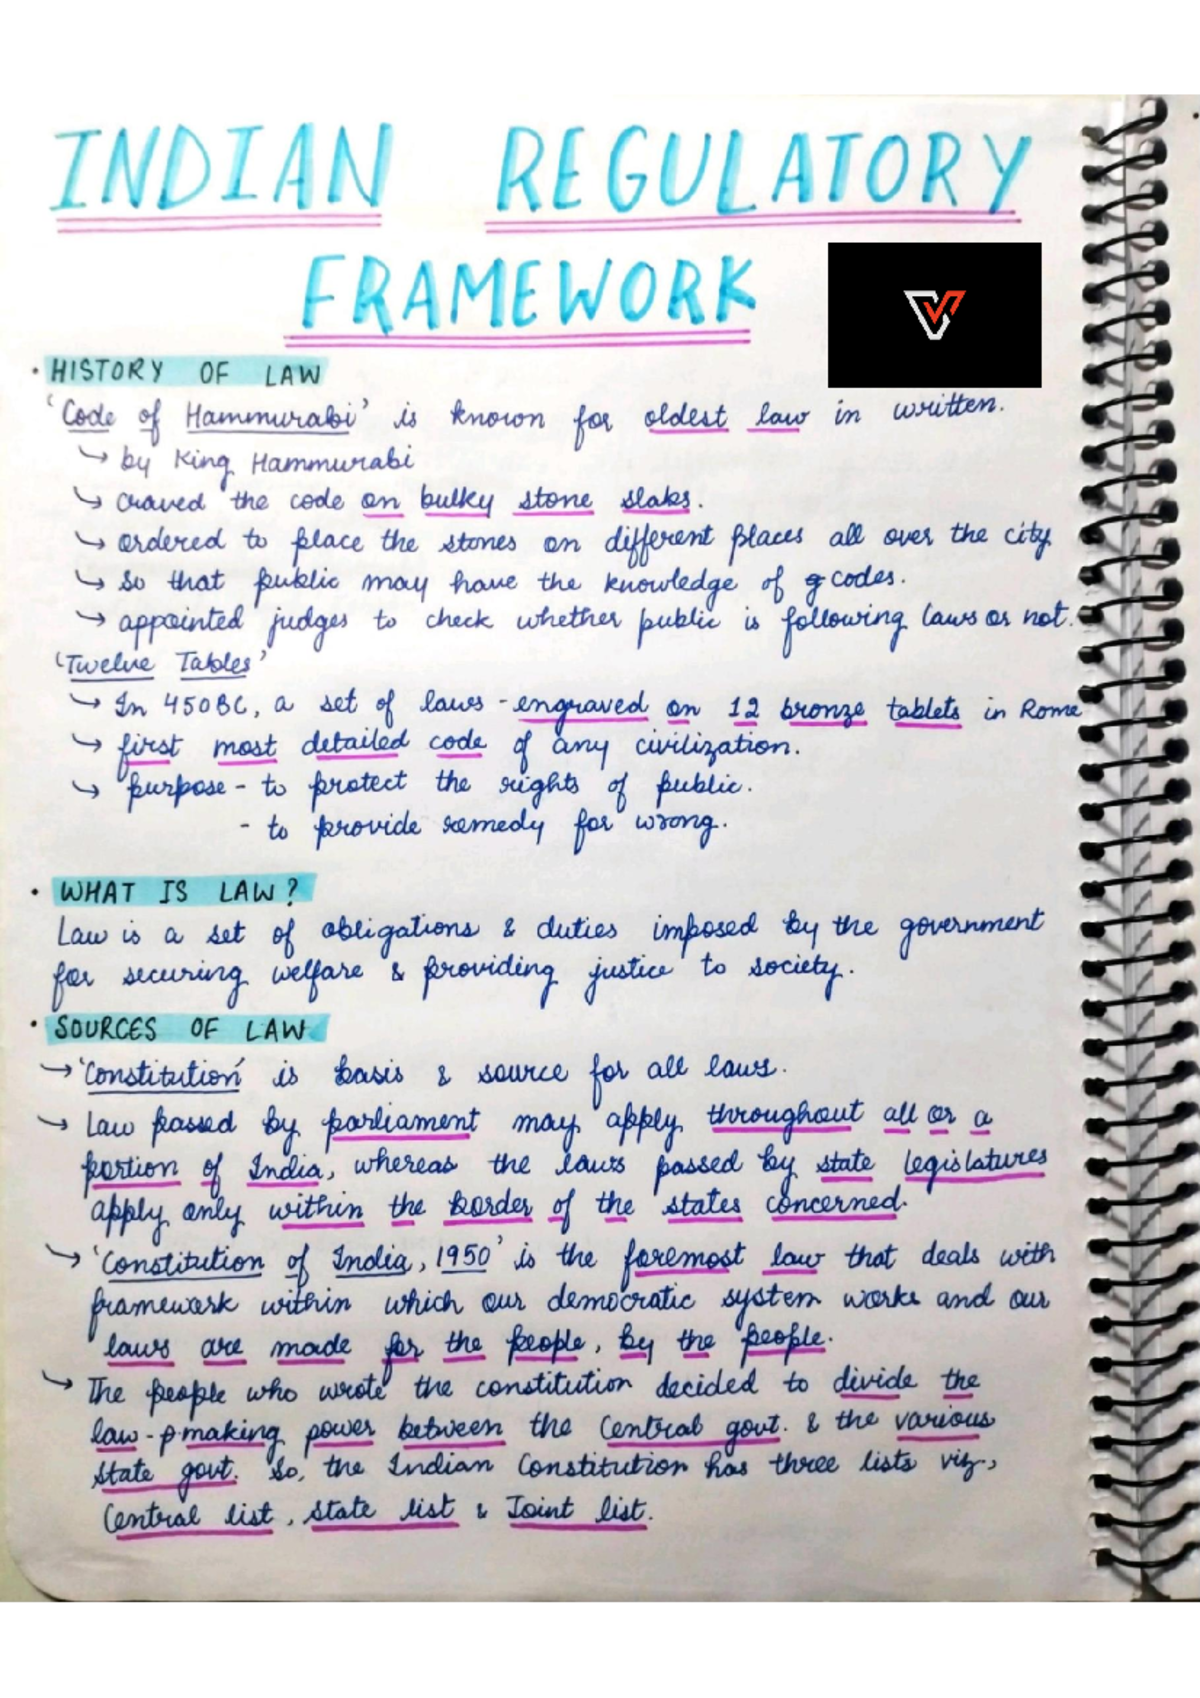 INDIAN REGULATORY
FRAMEWORK
• HISTORY OF LAW
'Code of Hammurabi' is known for oldest law in written.
↳ by King Hammurabi
↳ craved the code on bulky stone slabs.
↳ ordered to place the stones on different places all over the city
↳ so that public may have the knowledge of codes.
↳ appointed judges to check whether public is following laws or not.
'Twelve Tables'
↳ In 450BC, a set of laws - engraved on 12 bronze tablets in Rome
↳ first most detailed code of any civilization.
↳ purpose - to protect the rights of public.
- to provide remedy for wrong.
• WHAT IS LAW?
Law is a set of obligations & duties imposed by the government
for securing welfare & providing justice to society.
• SOURCES OF LAW
→ 'Constitution' is basis & source for all laws.
↳ Law passed by parliament may apply throughout all or a
portion of India, whereas the laws passed by state legislatures
apply only within the border of the states concerned.
↳ 'Constitution of India, 1950' is the foremost law that deals with
framework within which our democratic system works and our
laws are made for the people, by the people.
↳ The people who wrote the constitution decided to divide the
law - making power between the Central govt. & the various
State govt. So, the Indian Constitution has three lists viz.,
Central list, State list & Joint list.